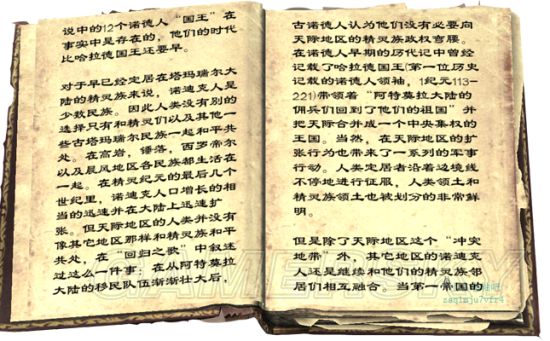 说中的12个诺德人“国王”在
事实中是存在的，他们的时代
比哈拉德国王还要早。
对于早已经定居在塔玛瑞尔大
陆的精灵族来说，诺迪克人是
少数民族。因此人类没有别的
选择只有和精灵们以及其他一
些古塔玛瑞尔民族一起和平共
处。在高岩，锤落，西罗帝尔
以及晨风地区各民族都生活在
一起。在精灵纪元的最后几个
世纪里，诺迪克人口增长的相
当的迅速并在大陆上迅速扩
张。但天际地区的人类并没有
像其它地区那样和精灵族和平
共处，在“回归之歌”中叙述
过这么一件事，在从阿特莫拉
大陆的移民队伍渐渐壮大后，
古诺德人认为他们没有必要向
天际地区的精灵族政权弯腰。
在诺德人早期的历代记中曾经
记载了哈拉德国王(第一位历史
记载的诺德人领袖，1纪元113-
221)带领着“阿特莫拉大陆的
佣兵们回到了他们的祖国”并
把天际合并成一个中央集权的
王国。当然，在天际地区的扩
张行为也带来了一系列的军事
行动。人类定居者沿着边境线
不停地进行征服，人类领土和
精灵族领土也被划分的非常鲜
明。
但是除了天际地区这个“冲突
地带”外，其它地区的诺迪克
人还是继续和他们的精灵族邻
居们相互融合。当第一帝国的
GAMERSKY
zaq1mju7vfr4